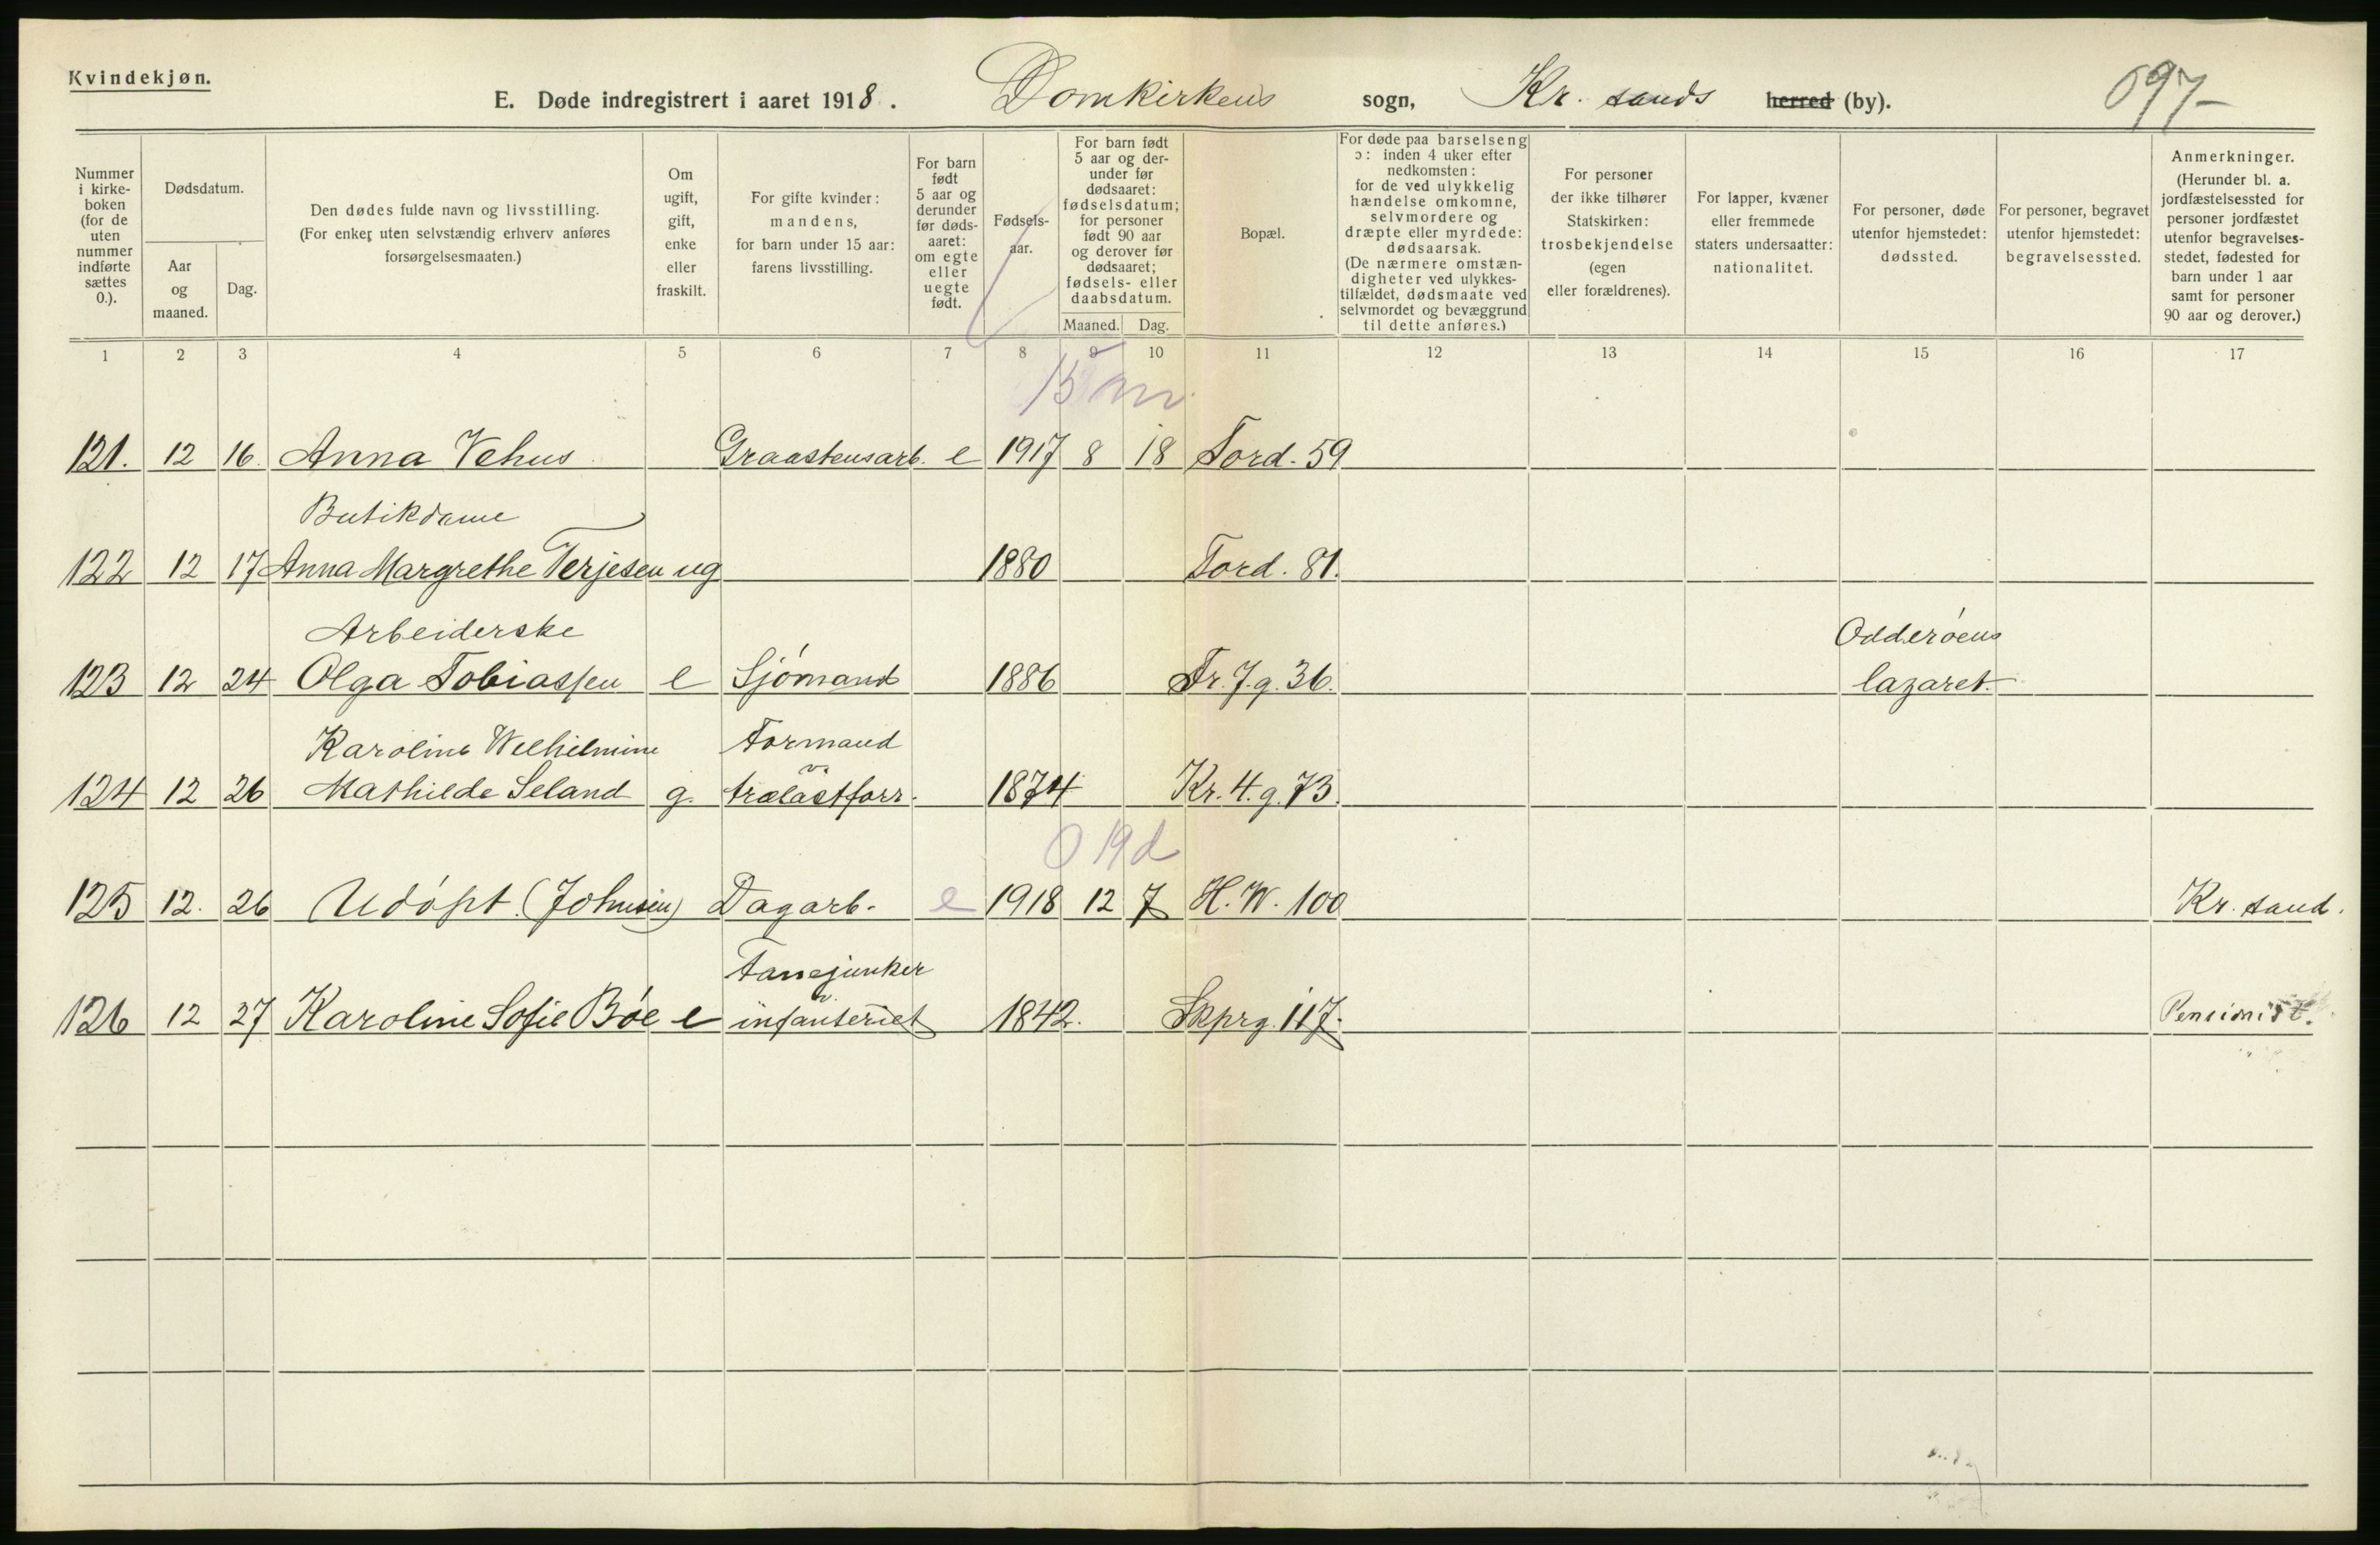 Kvindekjøn.
E. Døde indregistrert i aaret 1918. Domkirkens sogn, Kr. sands herred (by). 697-
Nummer i kirke-boken (for de uten nummer indførte sættes 0.).
Dødsdatum.
Aar og maaned.
Dag.
Den dødes fulde navn og livsstilling. (For enker uten selvstændig erhverv anføres forsørgelsesmaaten.)
Om ugift, gift, enke eller fraskilt.
For gifte kvinder: mandens, for barn under 15 aar: farens livsstilling.
For barn født 5 aar og derunder før døds-aaret: om egte eller uegte født.
Fødsels-aar.
For barn født 5 aar og der-under før dødsaaret: fødselsdatum; for personer født 90 aar og derover før dødsaaret; fødsels- eller daabsdatum.
Maaned. Dag.
Bopæl.
For døde paa barselseng ɔ: inden 4 uker efter nedkomsten: for de ved ulykkelig hændelse omkomne, selvmordere og dræpte eller myrdede: dødsaarsak. (De nærmere omstæn-digheter ved ulykkes-tilfældet, dødsmaate ved selvmordet og bevæggrund til dette anføres.)
For personer der ikke tilhører Statskirken: trosbekjendelse (egen eller forældrenes).
For lapper, kvæner eller fremmede staters undersaatter: nationalitet.
For personer, døde utenfor hjemstedet: dødssted.
For personer, begravet utenfor hjemstedet: begravelsessted.
Anmerkninger. (Herunder bl. a. jordfæstelsessted for personer jordfæstet utenfor begravelses-stedet, fødested for barn under 1 aar samt for personer 90 aar og derover.)
1 2 3 4 5 6 7 8 9 10 11 12 13 14 15 16 17
15 m.
121. 12 16. Anna Vehus Graastensarb. e 1917 8 18 Tord. 59
Butikdame
122 12 17 Anna Margrethe Terjesen ug 1880 Tord. 81.
Arbeiderske Odderøens
123 12 24 Olga Tobiassen e Sjømand 1886 Fr. 7. g. 36. lazaret.
Karoline Wilhelmine Formand
124 12 26 Mathilde Seland g. v. trælastforr. 1874 Kr. 4. g. 73.
0 19 d
125 12. 26 Udøpt. (Johnsen) Dagarb. e 1918 12 7 H. W. 100 Kr. sand.
Fanejunker
126 12 27 Karoline Sofie Bøe e v infanteriet 1842. Skprg. 117. Pensionist.